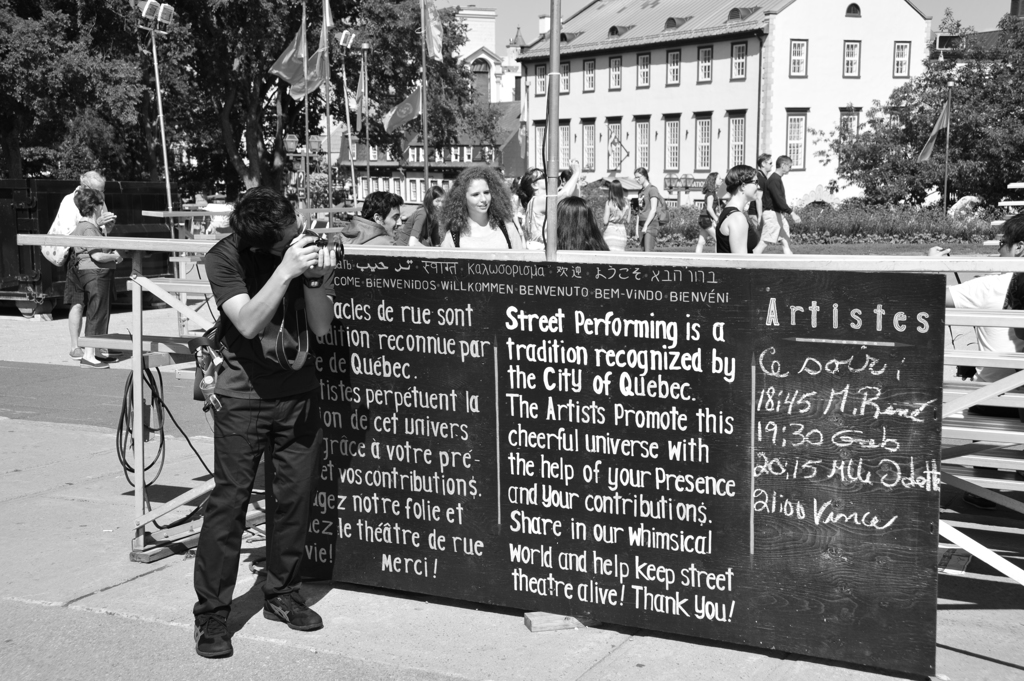 ترحيب स्वागत Καλωσόρισμα 欢迎 ようこそ ברוך הבא
COME·BIENVENIDOS·WiLLKOMMEN·BENVENUTO·BEM-ViNDO·BIENVÉNI
acles de rue sont
dition reconnue par
e de Québec.
tistes perpétuent la
ion de cet univers
grâce à votre pré-
et vos contribution$.
gez notre folie et
ez le théâtre de rue
vie!
Merci!
Street Performing is a
tradition recognized by
the City of Québec.
The Artists Promote this
cheerful universe with
the help of your Presence
and your contribution$.
Share in our whimsical
world and help keep street
theatre alive! Thank You!
Artistes
Ce soir:
18:45 M. René
19:30 Gab
20,15 Mlle Odett
21:00 Vince